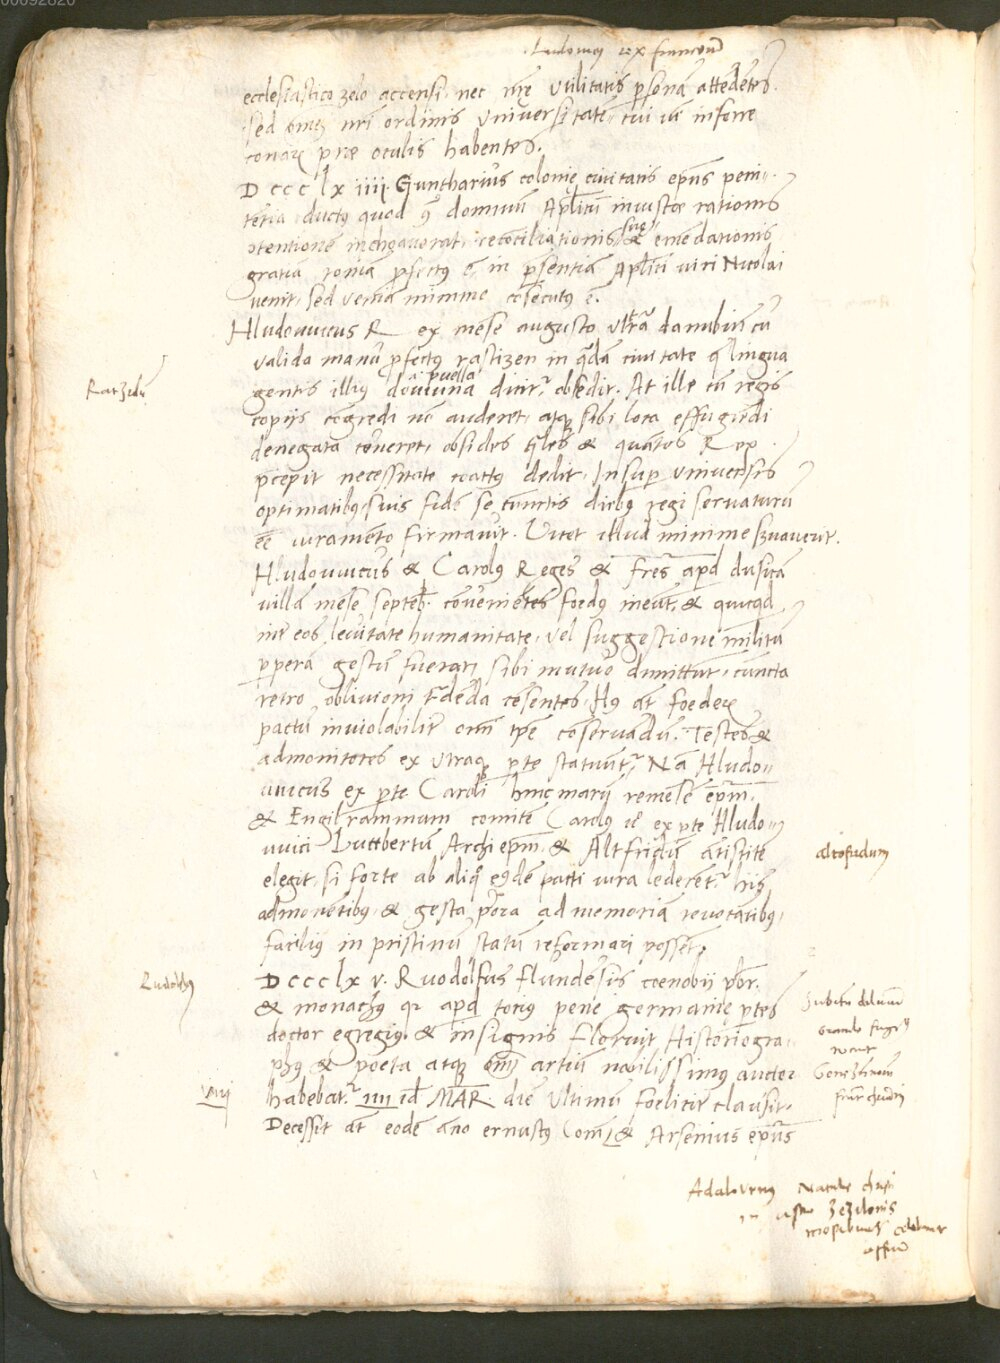 00092820
Ludowici rex francorū
ecclesiastico zelo accensi. nec nr̄e utilitatis p̲sonā attēdētes.
sed omēs nr̄i ordinis universitatē. cui vī inferre
conar̄ prae oculis habentes.
D ccc lx iiii. Guntharius colonię civitatis ep̄us peni-
tētia ductus quod domnum Ap̄licū iniustae rationis
ōtentione inchgaverat. recōciliationis suę & emēdationis
gratia romā p̲fectus ē, in p̲sentiā Ap̄lici viri Nicolai
venit, sed veniā minime cōsecutus ē.
Hludouuicus R ex mēse augusto ultra danubiū cū
valida manū p̲fectus rastizen in q̄dā civitate q̄ lingua
Ratzidū
gentis illius douuina dicit᷑, obsedit. At ille cū regis
.i. puella
copijs cōgredi nō auderet, atq̨ sibi loca effugiēdi
denegata cōneret, obsides q̄les & quātos Rex
p̲cepit necessitate coactus dedit. Insup̲ universis
optimatibus suis fidē se cunctis diebus regi servaturū
eē iuramento firmavit. Licet illud minime s̲rvaverit.
Hludouuicus & Carolus Reges & frēs apd̄ dusicā
villā mēse septēb. convenientes foedus ineūt, & quicqd̄
int̄ eos levitate humanitate, vel suggestione militū
p̲perā gestū fuerat, sibi mutuo dimittunt, cuncta
retro oblivioni t̄dēda cēsentes. Hᷣ aūt foederis
pactū inviolabilit̄ omi tp̄e cōservādū. Testes &
admonitores ex utraq̨ p̲te statuunt᷑, Nā Hludo-
uuicus ex p̲te Caroli hincmarū remēsē ep̄m.
& Engilrammum comitē Carolus v̄ ex p̲te Hludo-
uuici Luttbertū Archiep̄m. & Altfridū ātistitē
altofridum
elegit, si forte ab aliq̄ eiusdē pacti iura lederēt᷑, his
admonētibus & gesta p̲ora ad memoriā revocātibus,
facilius in pristinū statū reformari possēt.
Rudolfus
D ccc lx v. Ruodolfus fluldēsis coenobij p̲br.
& monachus qi apd̄ totius pene germanię p̲tes
Subito diluuiū
doctor egregius & insignis floruit Historiogra-
grando
phus & poeta atq̨ om̄ artiū nobilissimus auctor
viij
habebat᷑. iiii id MAR. diē ultimū foelicit̄ clausit.
Decessit āt eodē āno ernustus Com̄. & Arsenius ep̄us
Natale chr̄i